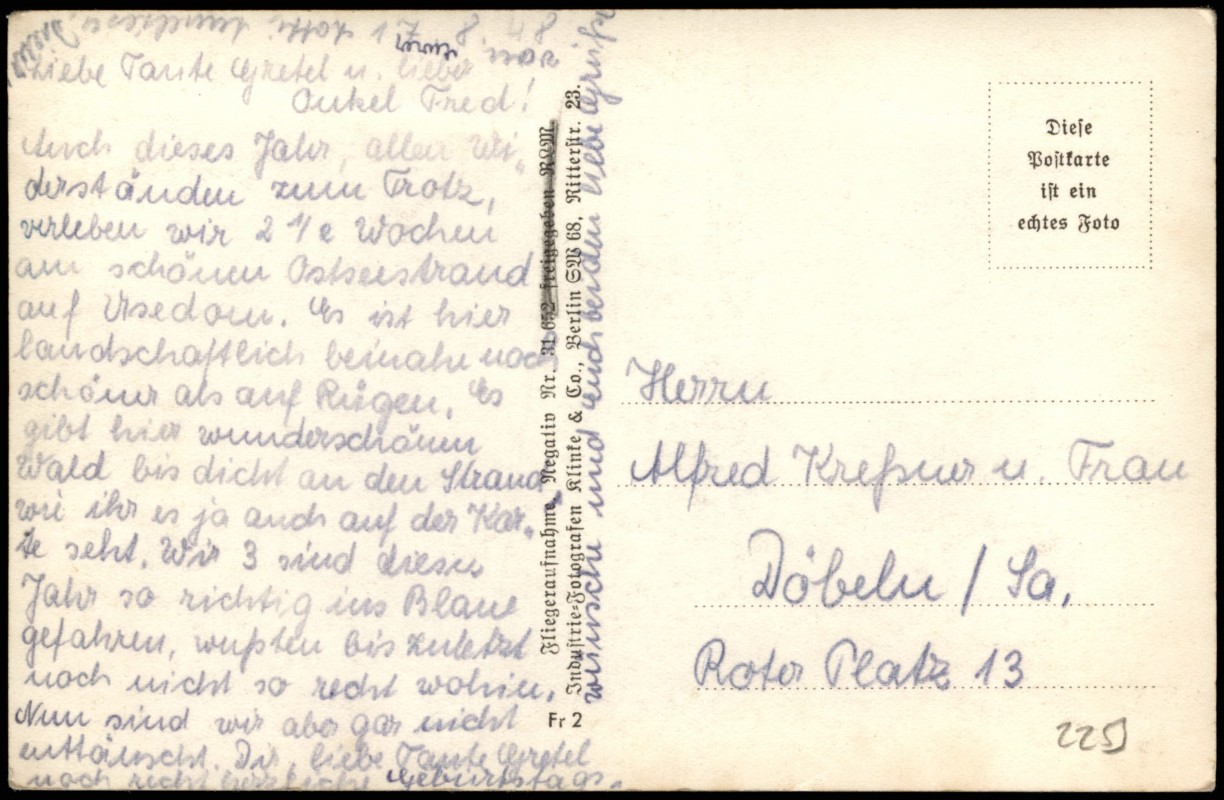 17. 8. 48
Liebe Tante Gretel u. lieber
Onkel Fred!
Auch dieses Jahr, allen Wi„
derständen zum Trotz,
verleben wir 2 1/2 Wochen
am schönen Ostseestrand
auf Usedom. Es ist hier
landschaftlich beinahe noch
schöner als auf Rügen. Es
gibt hier wunderschönen
Wald bis dicht an den Strand
wie ihr es ja auch auf der Kar„
te seht. Wir 3 sind dieses
Jahr so richtig ins Blaue
gefahren, wußten bis zuletzt
noch nicht so recht wohin.
Nun sind wir aber gar nicht
enttäuscht. Dir, liebe Tante Gretel
noch recht herzliche Geburtstags„
wünsche und euch beiden liebe Grüße
Fliegeraufnahme, Negativ Nr. 31652 freigegeben RLM.
Industrie-Fotografen Klinke & Co., Berlin SW 68, Ritterstr. 23.
Fr 2
Diese
Postkarte
ist ein
echtes Foto
Herrn
Alfred Kreßner u. Frau
Döbeln / Sa.
Roter Platz 13
225